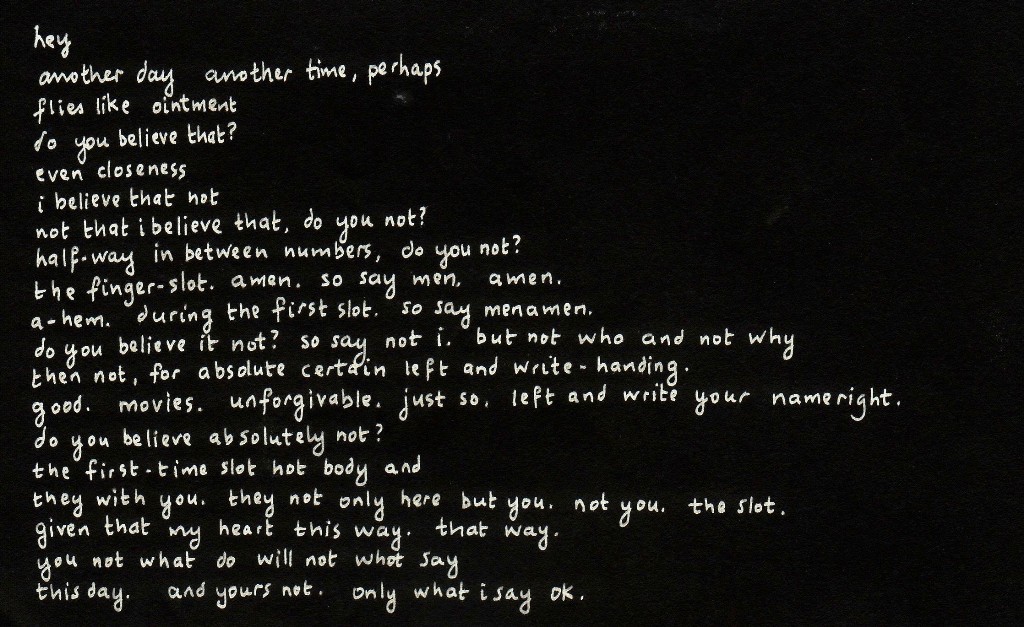 hey
another day another time, perhaps
flies like ointment
do you believe that?
even closeness
i believe that not
not that i believe that, do you not?
half-way in between numbers, do you not?
the finger-slot. amen. so say men. amen.
a-hem. during the first slot. so say menamen.
do you believe it not? so say not i. but not who and not why
then not, for absolute certain left and write-handing.
good. movies. unforgivable. just so. left and write your nameright.
do you believe absolutely not?
the first-time slot hot body and
they with you. they not only here but you. not you. the slot.
given that my heart this way. that way.
you not what do will not whot say
this day. and yours not. only what i say ok.